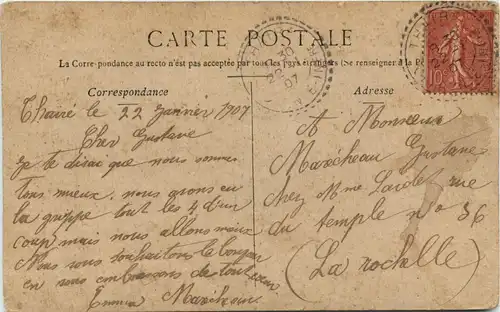 CARTE POSTALE
La Correspondance au recto n'est pas acceptée par tous les Pays étrangers (Se renseigner à la P
Correspondance
Adresse
Thairé le 22 Janvier 1907
Cher Gustave
Je te dirai que nous sommes
tous mieux. nous avons eu
la grippe tout les 4 d'un
coup mais nous allons mieux
Nous vous souhaitons le bonjour
en vous embrassons de tout cœur
Emma Marécheau
A Monsieur
Marécheau Gustave
chez Mme rue
du temple no 36
(La rochelle)
30
22
07
10